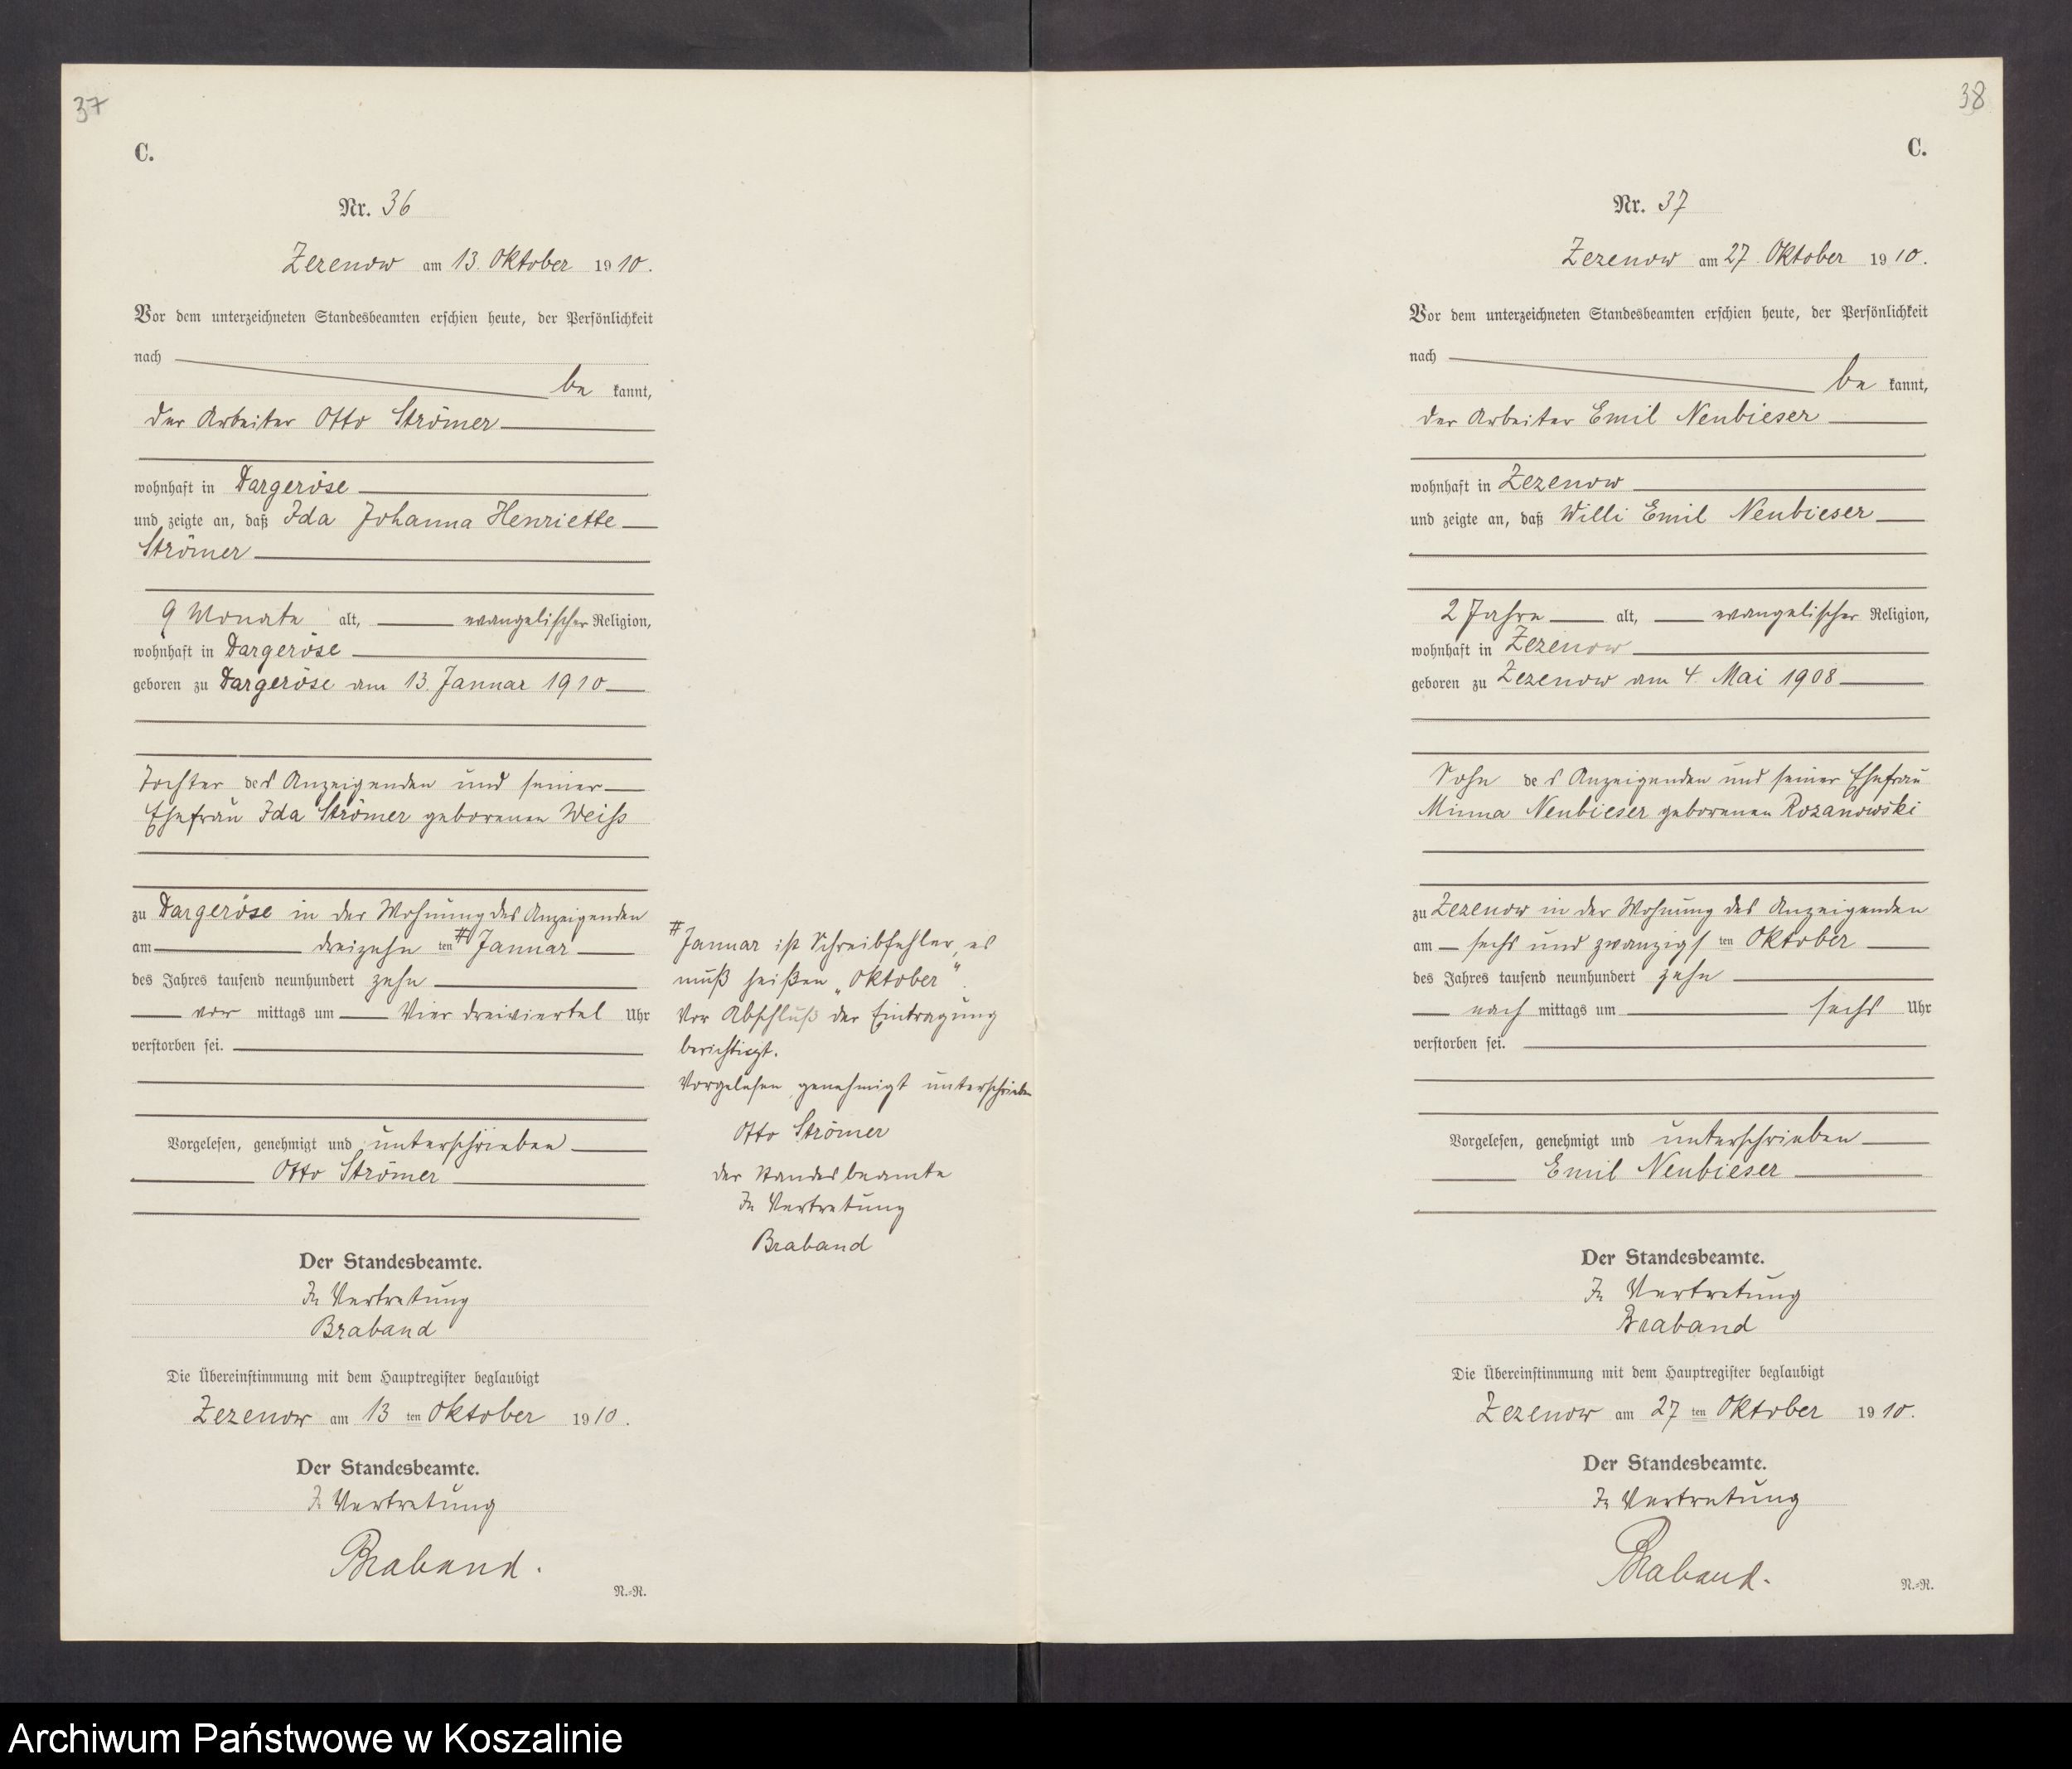 37
C.
Nr. 36
Zezenow am 13. Oktober 1910.
Vor dem unterzeichneten Standesbeamten erschien heute, der Persönlichkeit
nach
be kannt,
der Arbeiter Otto Strömer
wohnhaft in Dargeröse
und zeigte an, daß Ida Johanna Henriette
Strömer
9 Monate alt, evangelischer Religion,
wohnhaft in Dargeröse
geboren zu Dargeröse am 13. Januar 1910
Tochter des Anzeigenden und seiner
Ehefrau Ida Strömer geborenen Weiss
zu Dargeröse in der Wohnung des Anzeigenden
am dreizehn ten # Januar
des Jahres tausend neunhundert zehn
vor mittags um Vier dreiviertel Uhr
verstorben sei.
Vorgelesen, genehmigt und unterschrieben
Otto Strömer
Der Standesbeamte.
In Vertretung
Braband
Die Übereinstimmung mit dem Hauptregister beglaubigt
Zezenow am 13 ten Oktober 1910.
Der Standesbeamte.
In Vertretung
Braband.
N.-R.
# Januar ist Schreibfehler, es
muß heißen „Oktober“.
Vor Abschluß der Eintragung
berichtigt.
Vorgelesen, genehmigt unterschrieben
Otto Strömer
der Standesbeamte
In Vertretung
Braband
38
C.
Nr. 37
Zezenow am 27. Oktober 1910.
Vor dem unterzeichneten Standesbeamten erschien heute, der Persönlichkeit
nach
be kannt,
der Arbeiter Emil Neubieser
wohnhaft in Zezenow
und zeigte an, daß Willi Emil Neubieser
2 Jahre alt, evangelischer Religion,
wohnhaft in Zezenow
geboren zu Zezenow am 4. Mai 1908
Sohn des Anzeigenden und seiner Ehefrau
Minna Neubieser geborenen Rozanowski
zu Zezenow in der Wohnung des Anzeigenden
am sechs und zwanzigs ten Oktober
des Jahres tausend neunhundert zehn
nach mittags um sechs Uhr
verstorben sei.
Vorgelesen, genehmigt und unterschrieben
Emil Neubieser
Der Standesbeamte.
In Vertretung
Braband
Die Übereinstimmung mit dem Hauptregister beglaubigt
Zezenow am 27 ten Oktober 1910.
Der Standesbeamte.
In Vertretung
Braband.
N.-R.
Archiwum Państwowe w Koszalinie